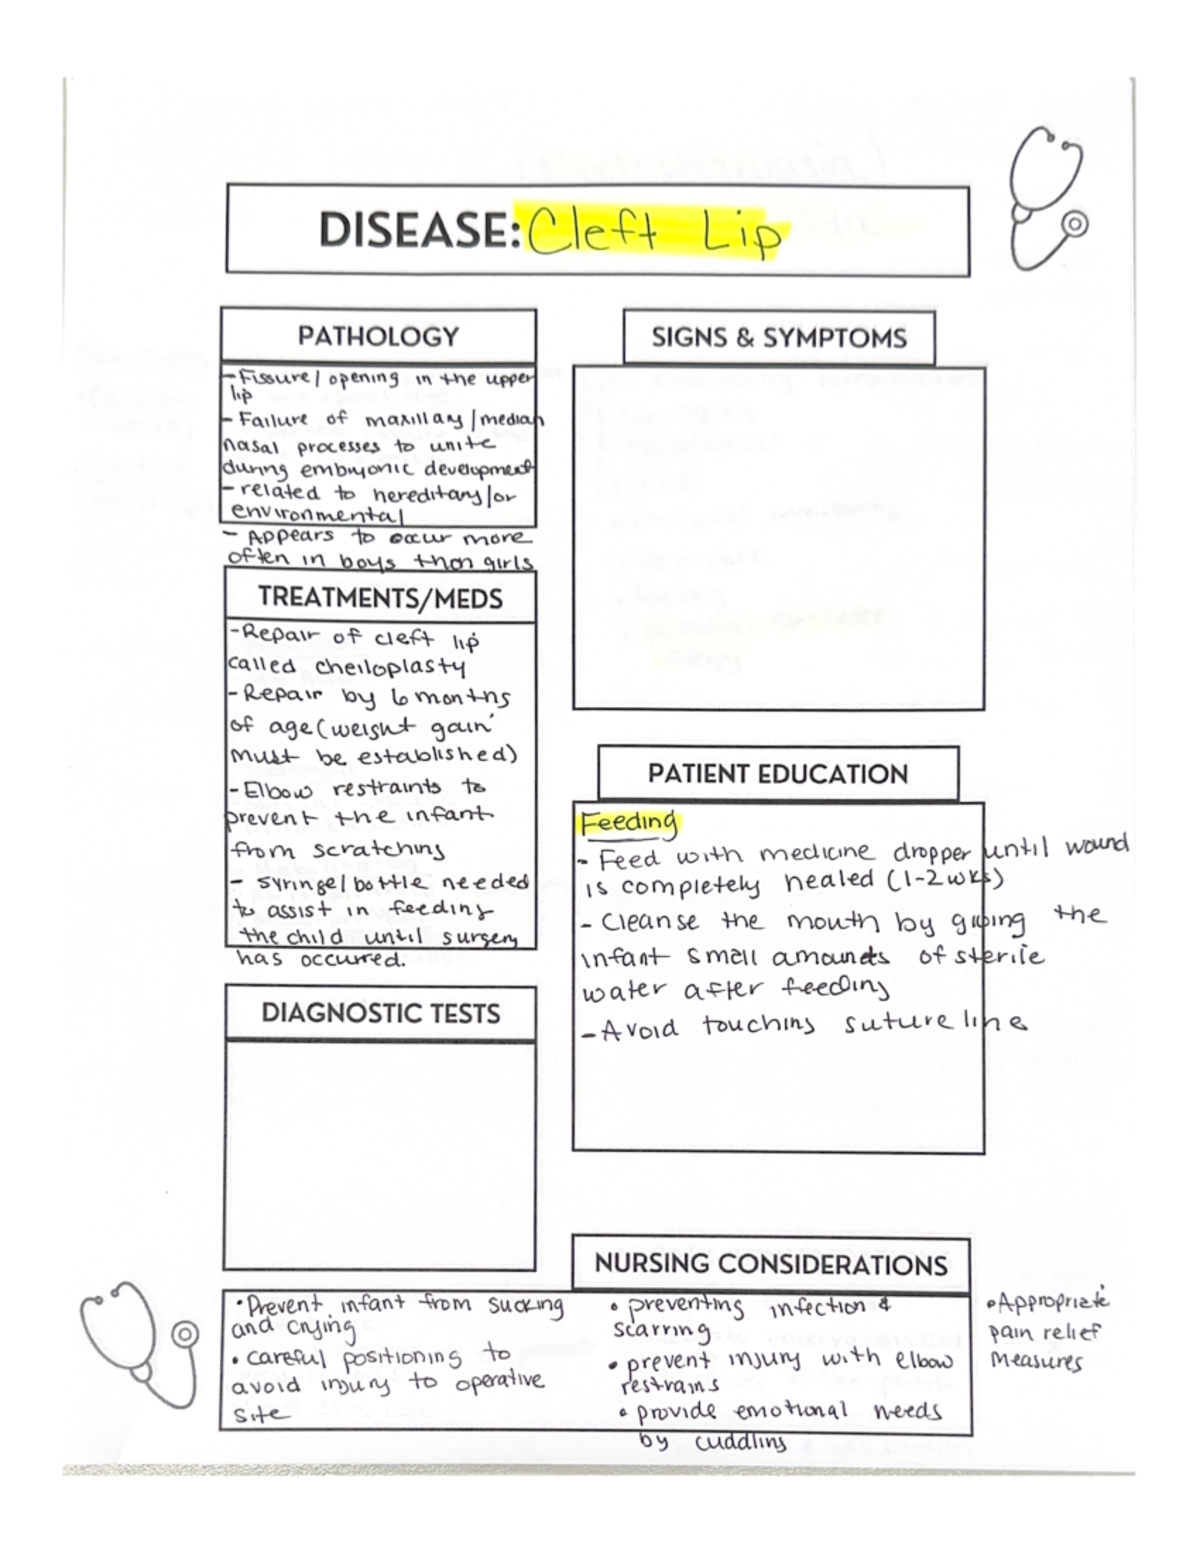 DISEASE: Cleft Lip
PATHOLOGY
- Fissure/ opening in the upper
lip
- Failure of maxillary/median
nasal processes to unite
during embryonic development
- related to hereditary/or
environmental
- Appears to occur more
often in boys than girls
TREATMENTS/MEDS
- Repair of cleft lip
called cheiloplasty
- Repair by 6 months
of age (weight gain
must be established)
- Elbow restraints to
prevent the infant
from scratching
- Syringe/bottle needed
to assist in feeding
the child until surgery
has occurred.
DIAGNOSTIC TESTS
SIGNS & SYMPTOMS
PATIENT EDUCATION
Feeding
- Feed with medicine dropper until wound
is completely healed (1-2 wks)
- Cleanse the mouth by giving the
infant small amounts of sterile
water after feeding
- Avoid touching suture line
NURSING CONSIDERATIONS
• Prevent infant from sucking
and crying
• careful positioning to
avoid injury to operative
site
• preventing infection &
scarring
• prevent injury with elbow
restrains
• provide emotional needs
by cuddling
• Appropriate
pain relief
measures